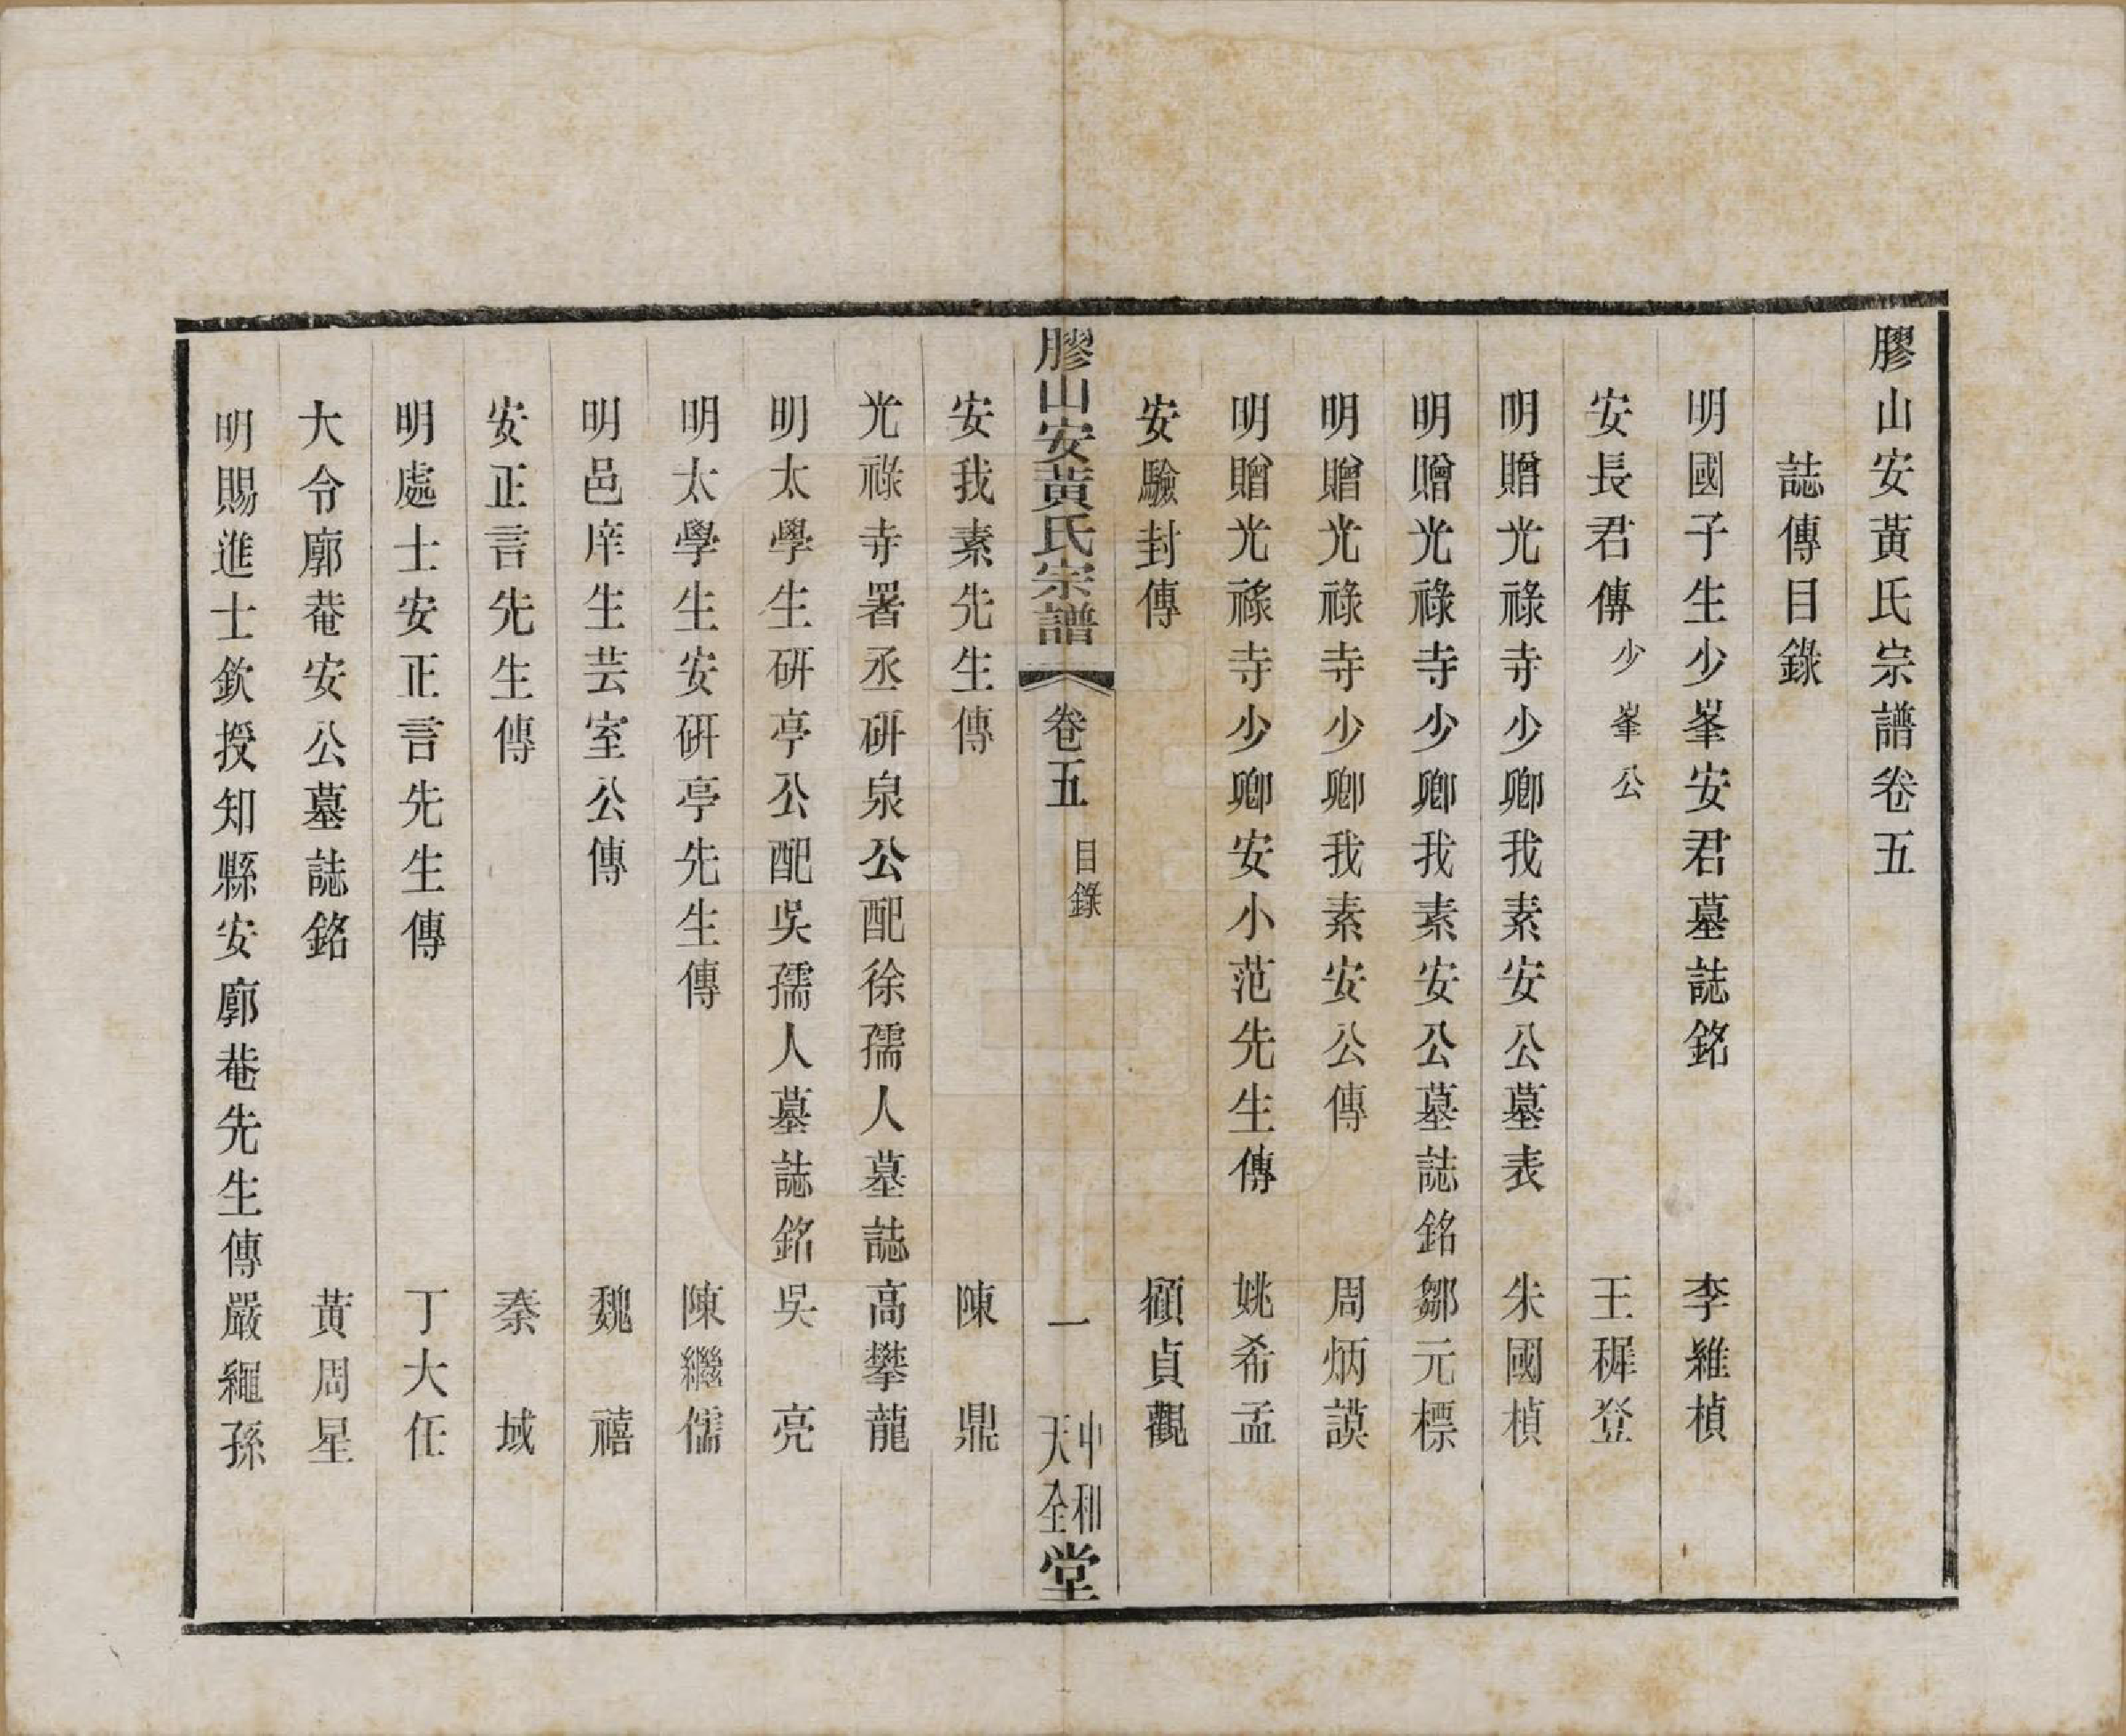 膠山安黃氏宗譜卷五
誌傳目錄
明國子生少峯安君墓誌銘 李維楨
安長君傳 少峯公 王穉登
明贈光祿寺少卿我素安公墓表 朱國楨
明贈光祿寺少卿我素安公墓誌銘 鄒元標
明贈光祿寺少卿我素安公傳 周炳謨
明贈光祿寺少卿安小范先生傳 姚希孟
安驗封傳 顧貞觀
膠山安黃氏宗譜 卷五 目錄 一 中和天全堂
安我素先生傳 陳鼎
光祿寺署丞研泉公配徐孺人墓誌 高攀龍
明太學生研亭公配吳孺人墓誌銘 吳亮
明太學生安研亭先生傳 陳繼儒
明邑庠生芸室公傳 魏禧
安正言先生傳 秦域
明處士安正言先生傳 丁大任
大令廓菴安公墓誌銘 黃周星
明賜進士欽授知縣安廓菴先生傳 嚴繩孫